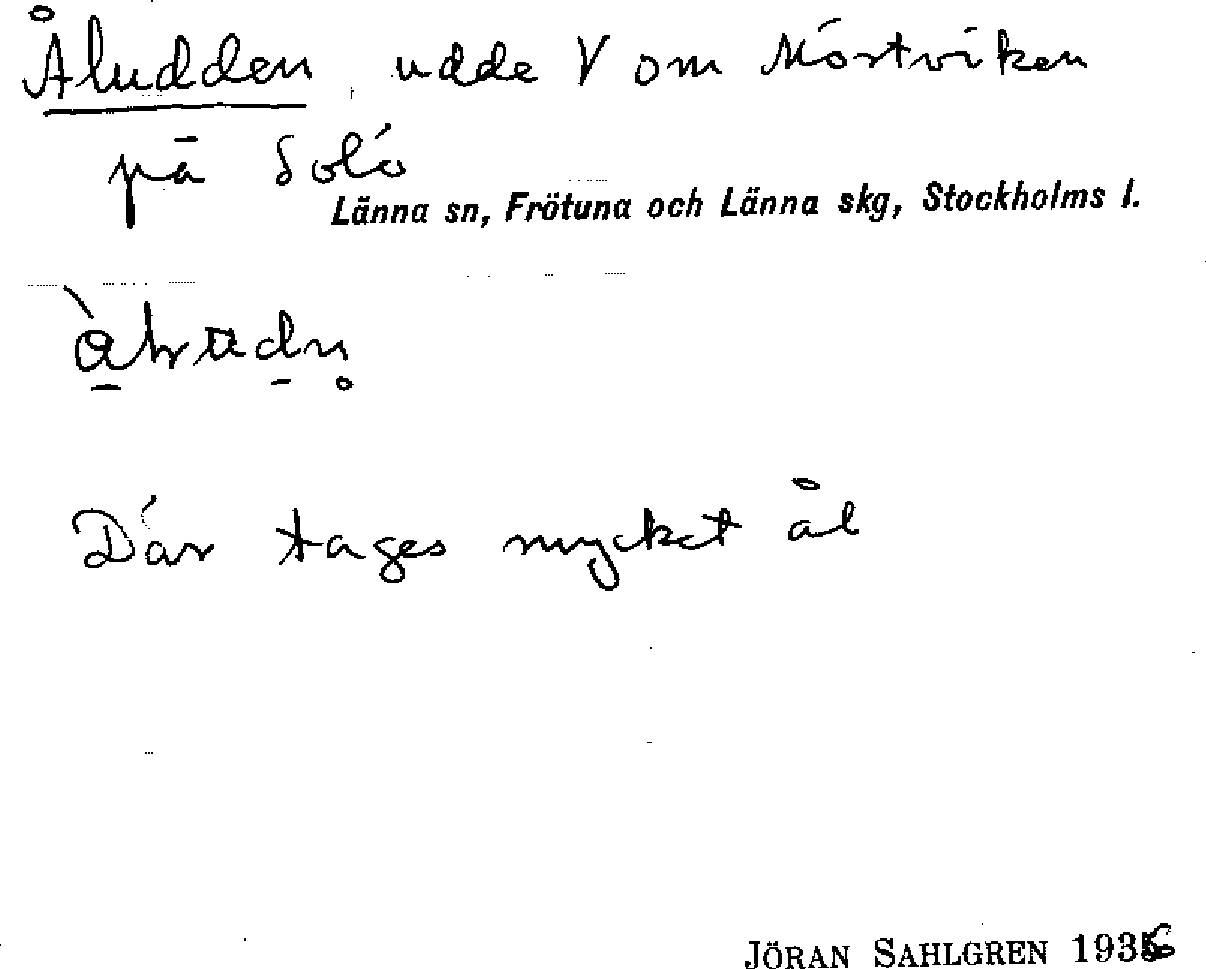 Åludden, udde V om Mörtviken
på Solö
Länna sn, Frötuna och Länna skg, Stockholms l.
Där tages mycket ål
JÖRAN SAHLGREN 1936